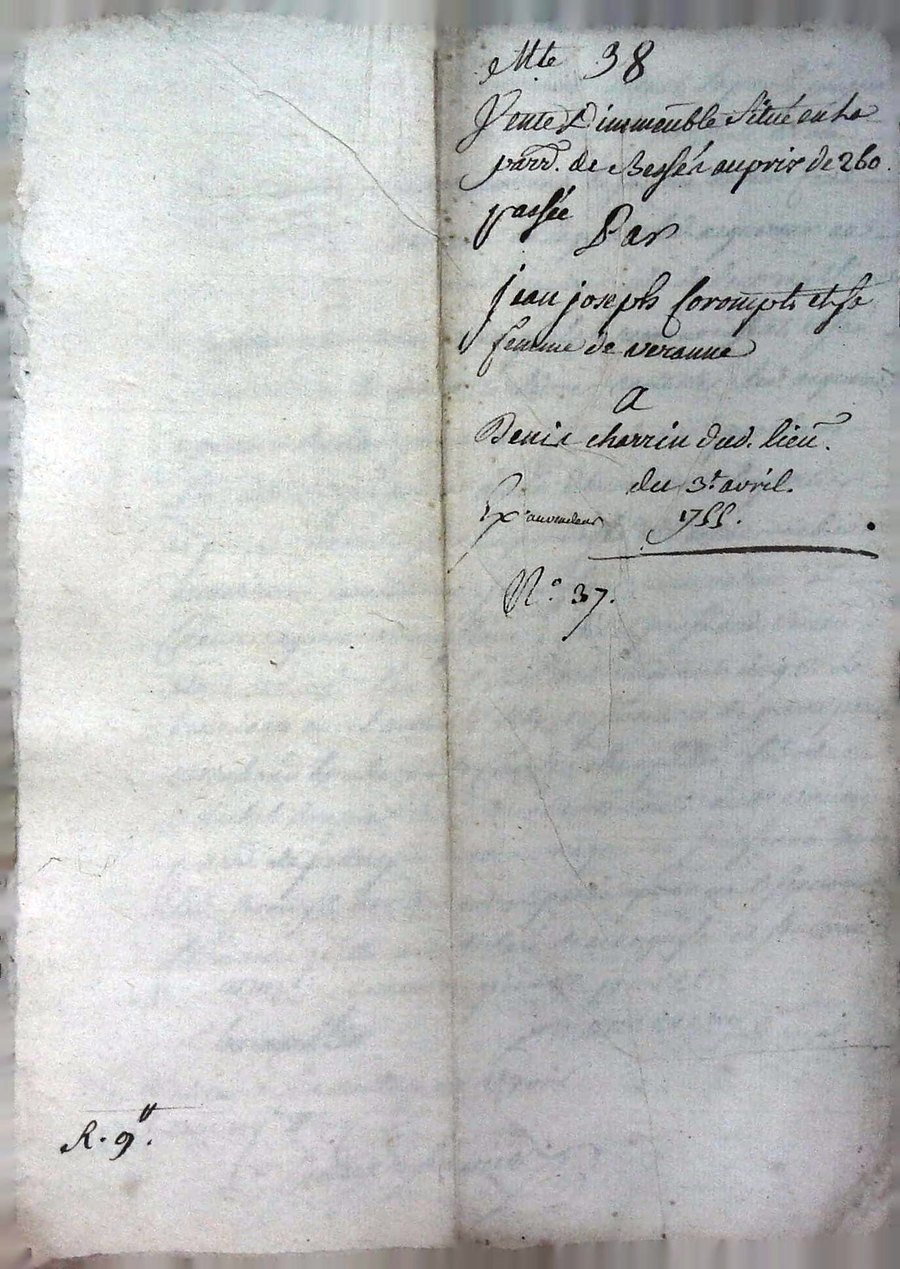 Mte 38
Vente D'immeuble Situé en la
parr. de Bessés au prix de 260.
passée Par
jean joseph Corompts et Sa
femme de veranne
a
Denis charrin dud. lieu.
du 3e avril.
1755.
N.º 37.
R. 9tt.